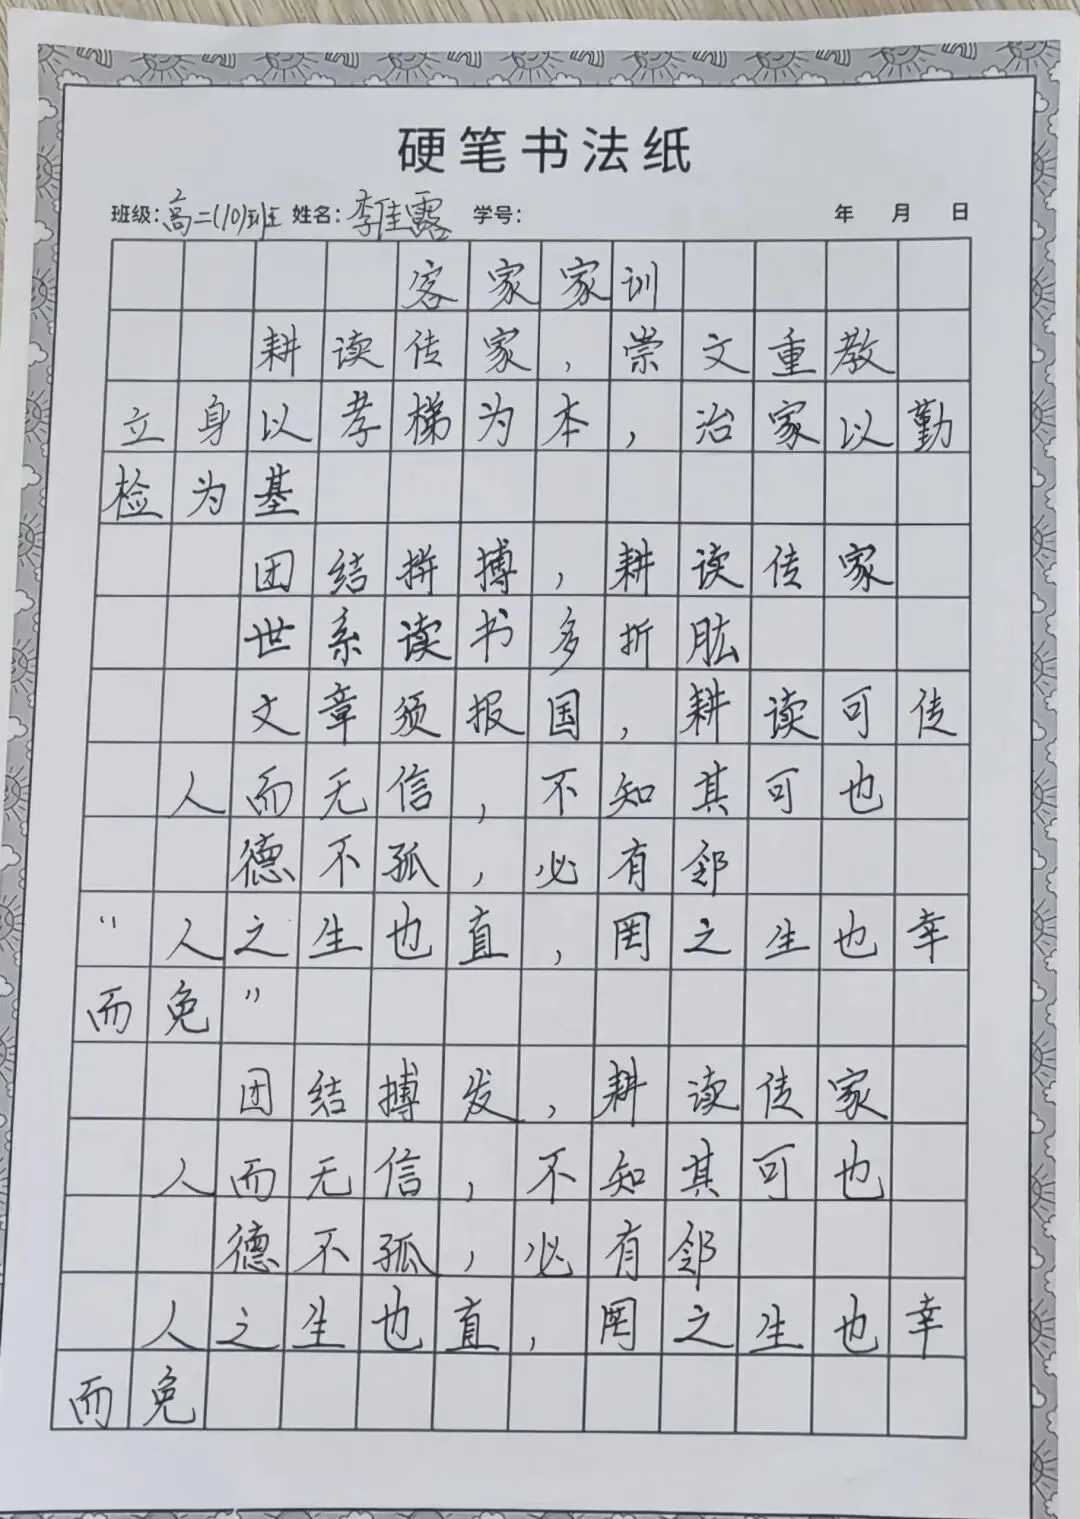 硬笔书法纸
班级：高二(10)班 姓名：李佳露 学号： 年 月 日
客家家训
耕读传家，崇文重教
立身以孝梯为本，治家以勤
检为基
团结拼搏，耕读传家
世系读书多折肱
文章须报国，耕读可传
人而无信，不知其可也
德不孤，必有邻
“人之生也直，罔之生也幸
而免”
团结搏发，耕读传家
人而无信，不知其可也
德不孤，必有邻
人之生也直，罔之生也幸
而免